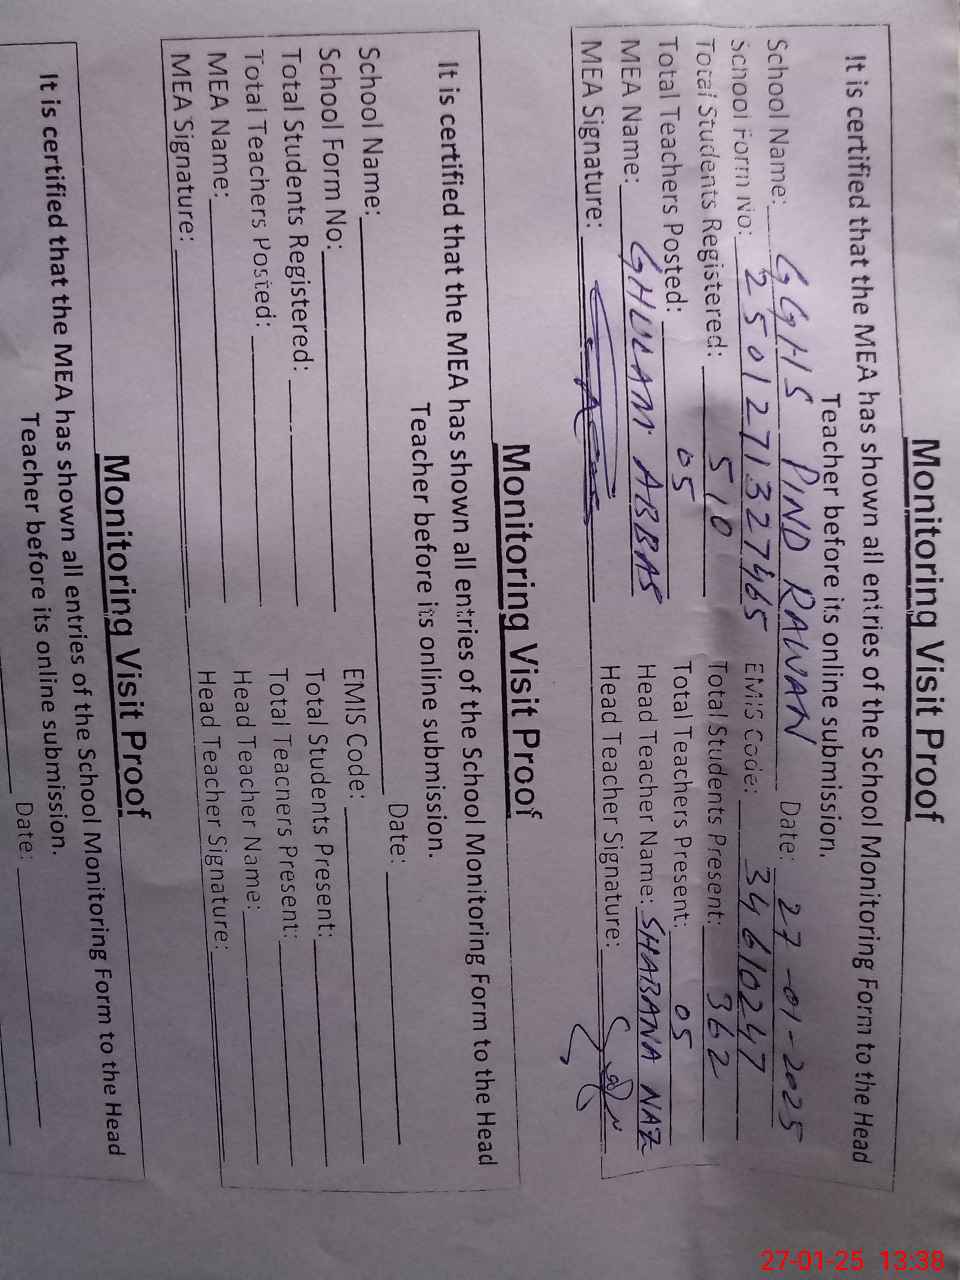 Monitoring Visit Proof
It is certified that the MEA has shown all entries of the School Monitoring Form to the Head
Teacher before its online submission.
School Name: GGHS PIND RAWAN Date: 27-01-2025
School Form No: 2501271327465 EMIS Code: 34610247
Total Students Registered: 510 Total Students Present: 362
Total Teachers Posted: 05 Total Teachers Present: 05
MEA Name: GHULAM ABBAS Head Teacher Name: SHABANA NAZ
MEA Signature: Head Teacher Signature:
Monitoring Visit Proof
It is certified that the MEA has shown all entries of the School Monitoring Form to the Head
Teacher before its online submission.
School Name: Date:
School Form No: EMIS Code:
Total Students Registered: Total Students Present:
Total Teachers Posted: Total Teachers Present:
MEA Name: Head Teacher Name:
MEA Signature: Head Teacher Signature:
Monitoring Visit Proof
It is certified that the MEA has shown all entries of the School Monitoring Form to the Head
Teacher before its online submission.
Date:
27-01-25 13:38